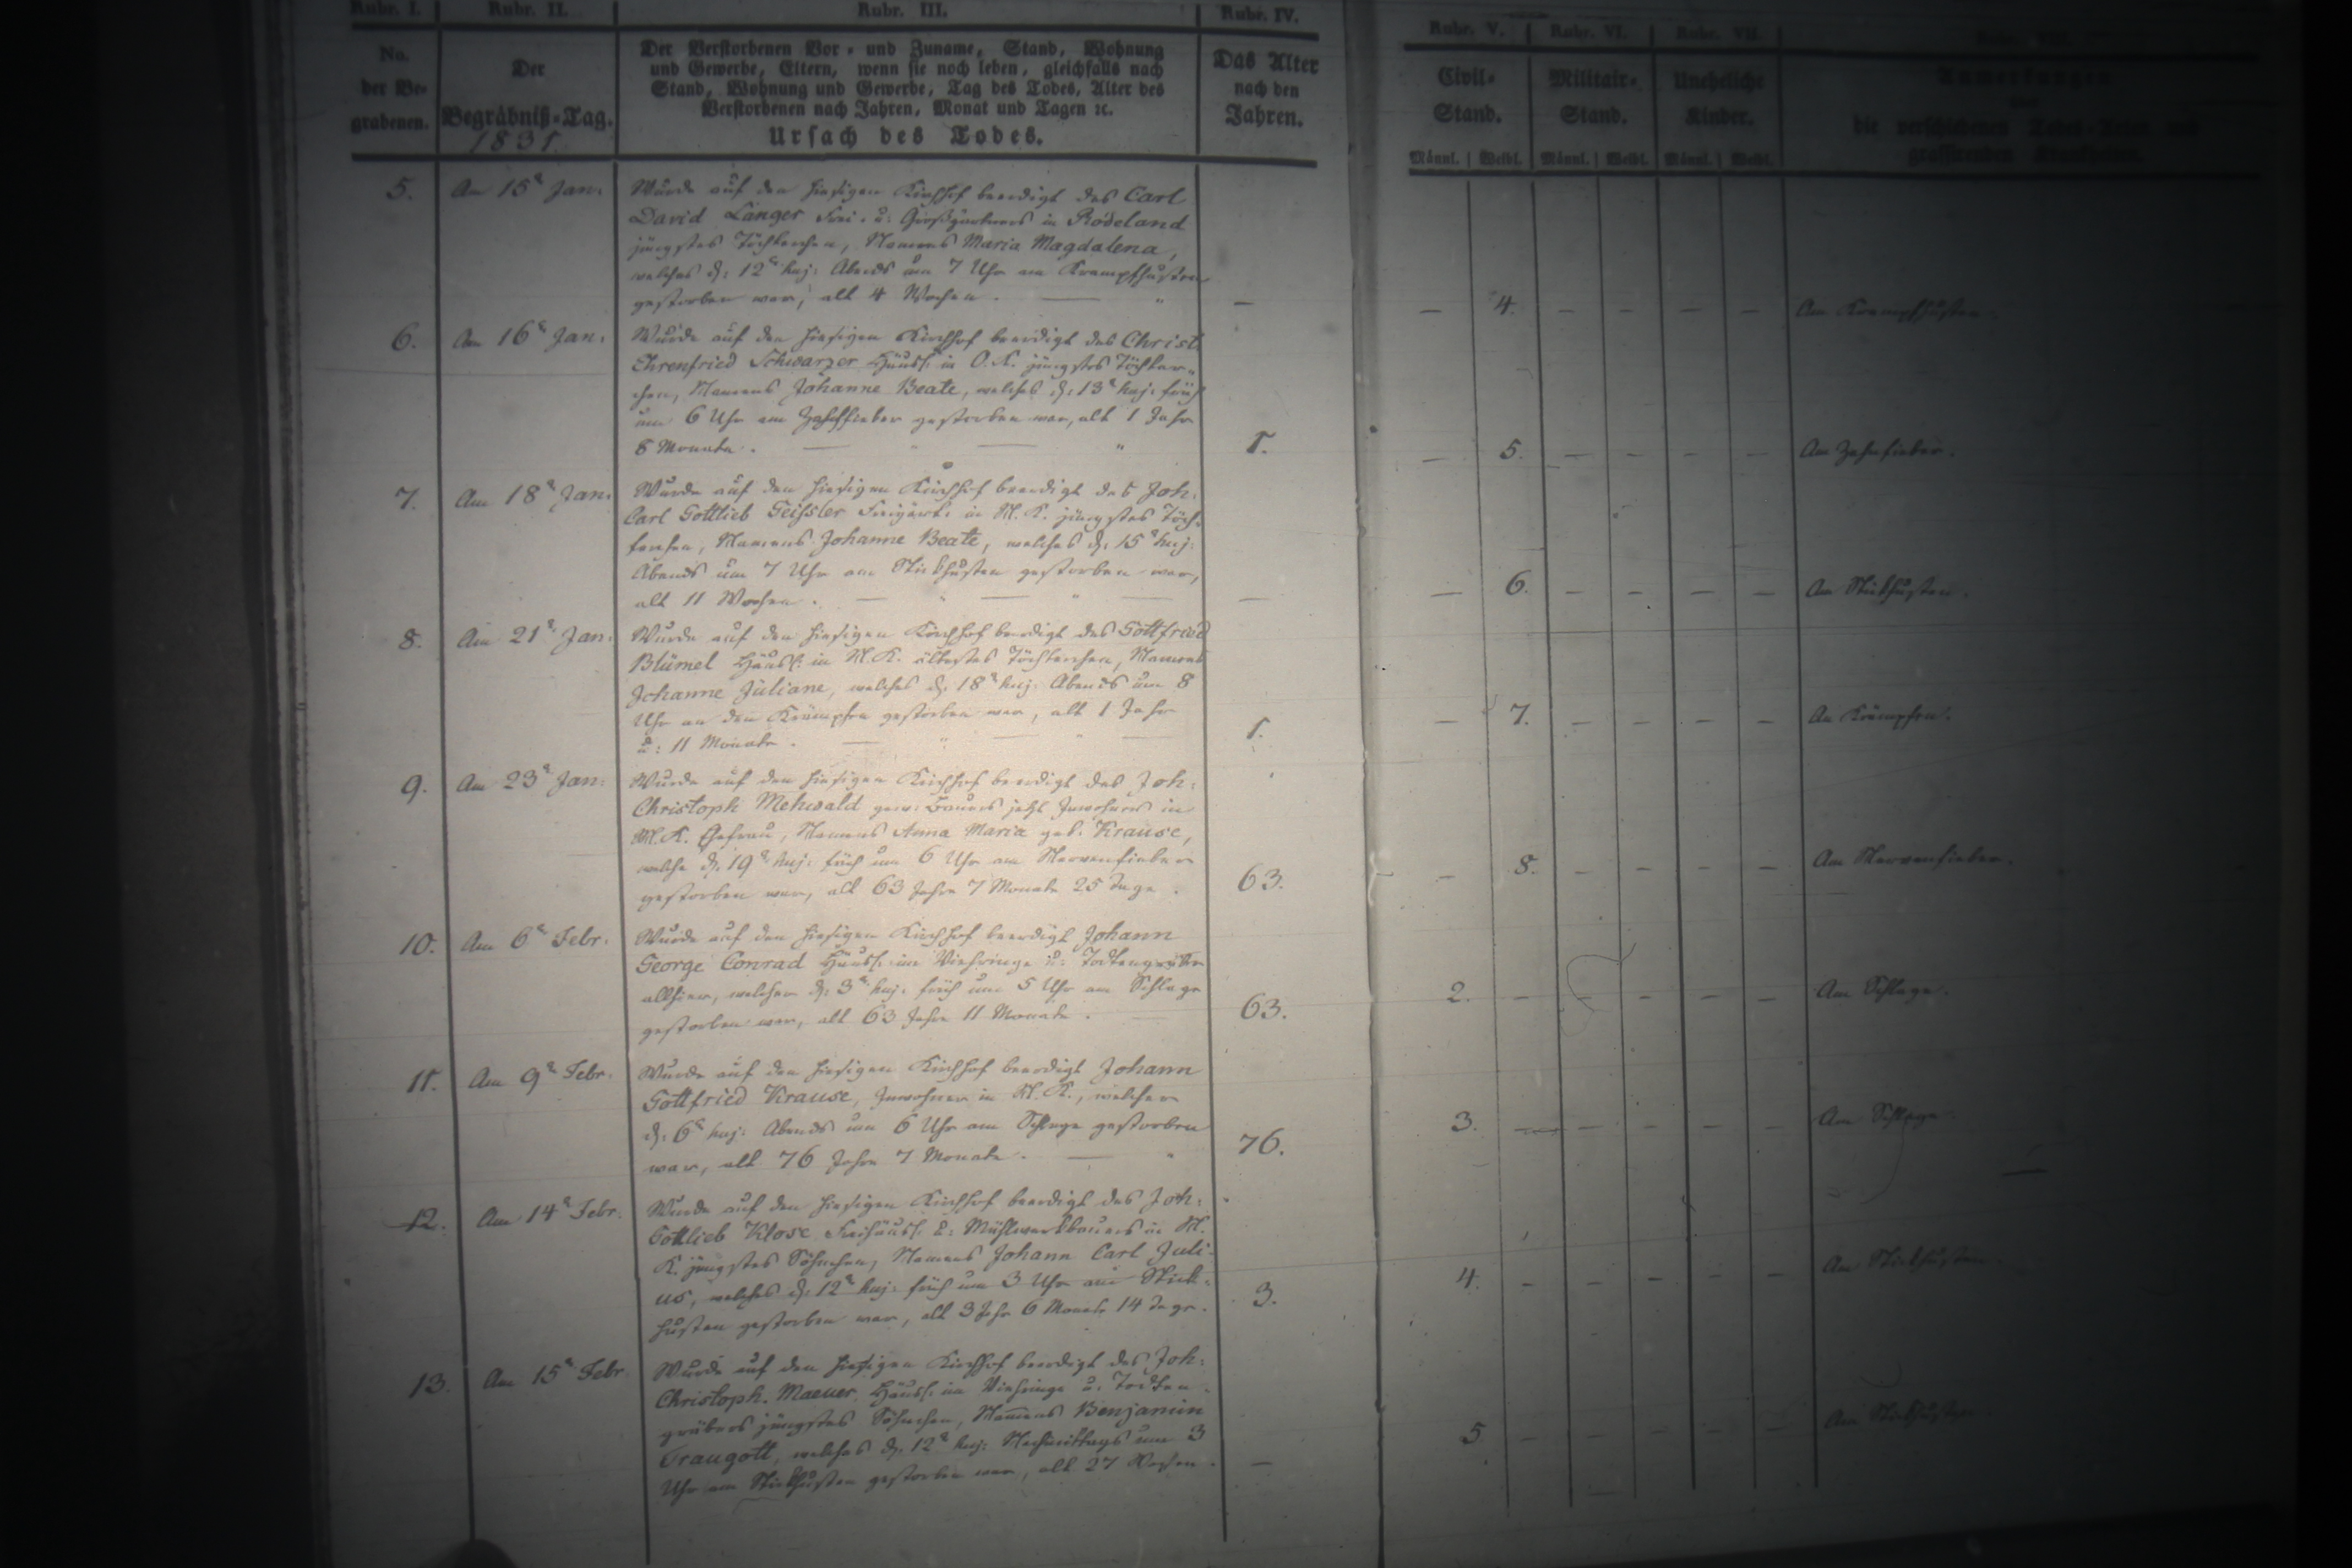 Rubr. I. Rubr. II. Rubr. III. Rubr. IV. Rubr. V. Rubr. VI. Rubr. VII.
No. der Be= grabenen.
Der Begräbniß=Tag. 1831.
Der Verstorbenen Vor= und Zuname, Stand, Wohnung
und Gewerbe, Eltern, wenn sie noch leben, gleichfalls nach
Stand, Wohnung und Gewerbe, Tag des Todes, Alter des
Verstorbenen nach Jahren, Monat und Tagen ꝛc.
Ursach des Todes.
Das Alter nach den Jahren.
Civil= Stand. Militair= Stand. Uneheliche Kinder.
Anmerkungen
die verschiedenen Todes=Arten und
grassirenden Krankheiten.
Männl. Weibl. Männl. Weibl. Männl. Weibl.
5. Am 15t Jan: Wurde auf den hiesigen Kirchhof beerdigt des Carl
David Länger Frei= u: Großgärtners in Rodeland
jüngstes Töchterchen, Namens Maria Magdalena,
welches d: 12t huj: Abends um 7 Uhr am Krampfhusten
gestorben war, alt 4 Wochen. — — 4. — — — — Am Krampfhusten.
6. Am 16t Jan: Wurde auf den hiesigen Kirchhof beerdigt des Christ:
Ehrenfried Schwarzer Häusl: in O. K. jüngstes Töchter=
chen, Namens Johanne Beate, welches d: 13t huj: früh
um 6 Uhr am Zahnfieber gestorben war, alt 1 Jahr
8 Monate. 1. — 5. — — — — Am Zahnfieber.
7. Am 18t Jan: Wurde auf den hiesigen Kirchhof beerdigt des Joh:
Carl Gottlieb Geißler Freigärt: in M. K. jüngstes Töch=
terchen, Namens Johanne Beate, welches d: 15t huj:
Abends um 7 Uhr am Stickhusten gestorben war,
alt 11 Wochen. — — 6. — — — — Am Stickhusten.
8. Am 21t Jan: Wurde auf den hiesigen Kirchhof beerdigt des Gottfried
Blümel Häusl: in M. K. ältestes Töchterchen, Namens
Johanne Juliane, welches d: 18t huj: Abends um 8
Uhr an den Krämpfen gestorben war, alt 1 Jahr
u: 11 Monate. 1. — 7. — — — — An Krämpfen.
9. Am 23t Jan: Wurde auf den hiesigen Kirchhof beerdigt des Joh:
Christoph Mehwald gew: Bauers jetzt Inwohners in
M. K. Ehefrau, Namens Anna Maria geb. Krause,
welche d: 19t huj: früh um 6 Uhr am Nervenfieber
gestorben war, alt 63 Jahre 7 Monate 25 Tage. 63. — 8. — — — — Am Nervenfieber.
10. Am 6t Febr: Wurde auf den hiesigen Kirchhof beerdigt Johann
George Conrad Häusl: im Viehringe u: Todtengräber
allhier, welcher d: 3t huj: früh um 5 Uhr am Schlage
gestorben war, alt 63 Jahre 11 Monate. 63. 2. — — — — — Am Schlage.
11. Am 9t Febr: Wurde auf den hiesigen Kirchhof beerdigt Johann
Gottfried Krause, Inwohner in M. K., welcher
d: 6t huj: Abends um 6 Uhr am Schlage gestorben
war, alt 76 Jahre 7 Monate. 76. 3. — — — — — Am Schlage
12. Am 14t Febr: Wurde auf den hiesigen Kirchhof beerdigt des Joh:
Gottlieb Klose Freihäusl: u: Mühlwerkbauers in M.
K. jüngstes Söhnchen, Namens Johann Carl Juli=
us, welches d: 12t huj: früh um 3 Uhr am Stick=
husten gestorben war, alt 3 Jahr 6 Monate 14 Tage. 3. 4. — — — — — Am Stickhusten
13. Am 15t Febr Wurde auf den hiesigen Kirchhof beerdigt des Joh:
Christoph. Maeuer Häusl: im Viehringe u. Todten=
gräbers jüngstes Söhnchen, Namens Benjamin
Traugott, welches d: 12t huj: Nachmittags um 3
Uhr am Stickhusten gestorben war, alt 27 Wochen. — 5 — — — — — Am Stickhusten